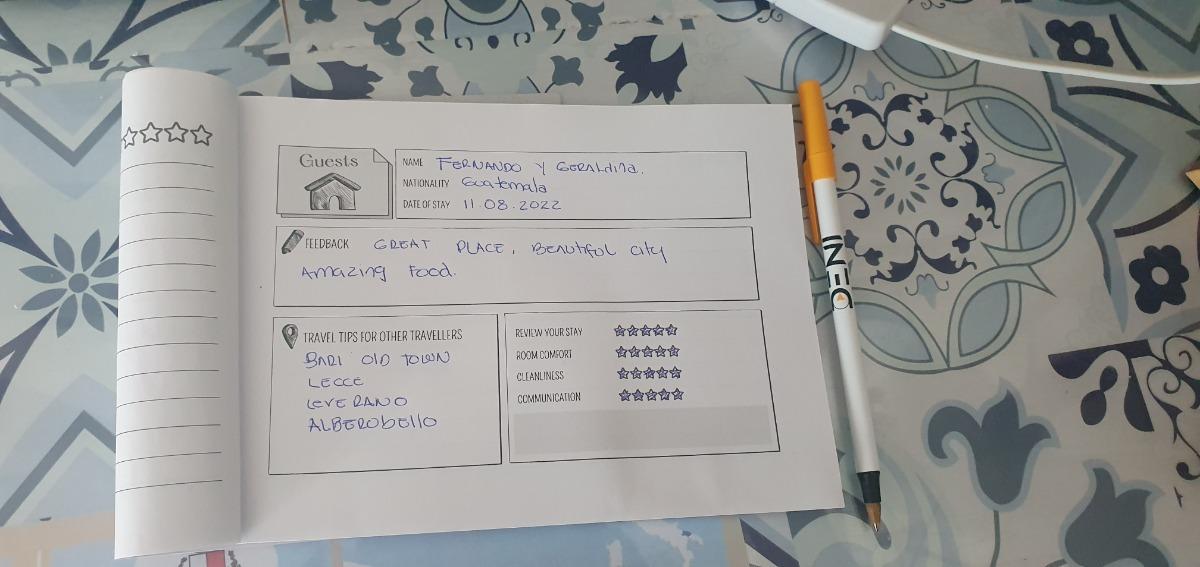 Guests
NAME FERNANDO Y GERALdINA.
NATIONALITY Guatemala
DATE OF STAY 11.08.2022
FEEDBACK GREAT PLACE, BEAUTIFUL CITY
AMAZING FOOD.
TRAVEL TIPS FOR OTHER TRAVELLERS
BARI OLD TOWN
LECCE
LEVERANO
ALBEROBELLO
REVIEW YOUR STAY
ROOM COMFORT
CLEANLINESS
COMMUNICATION